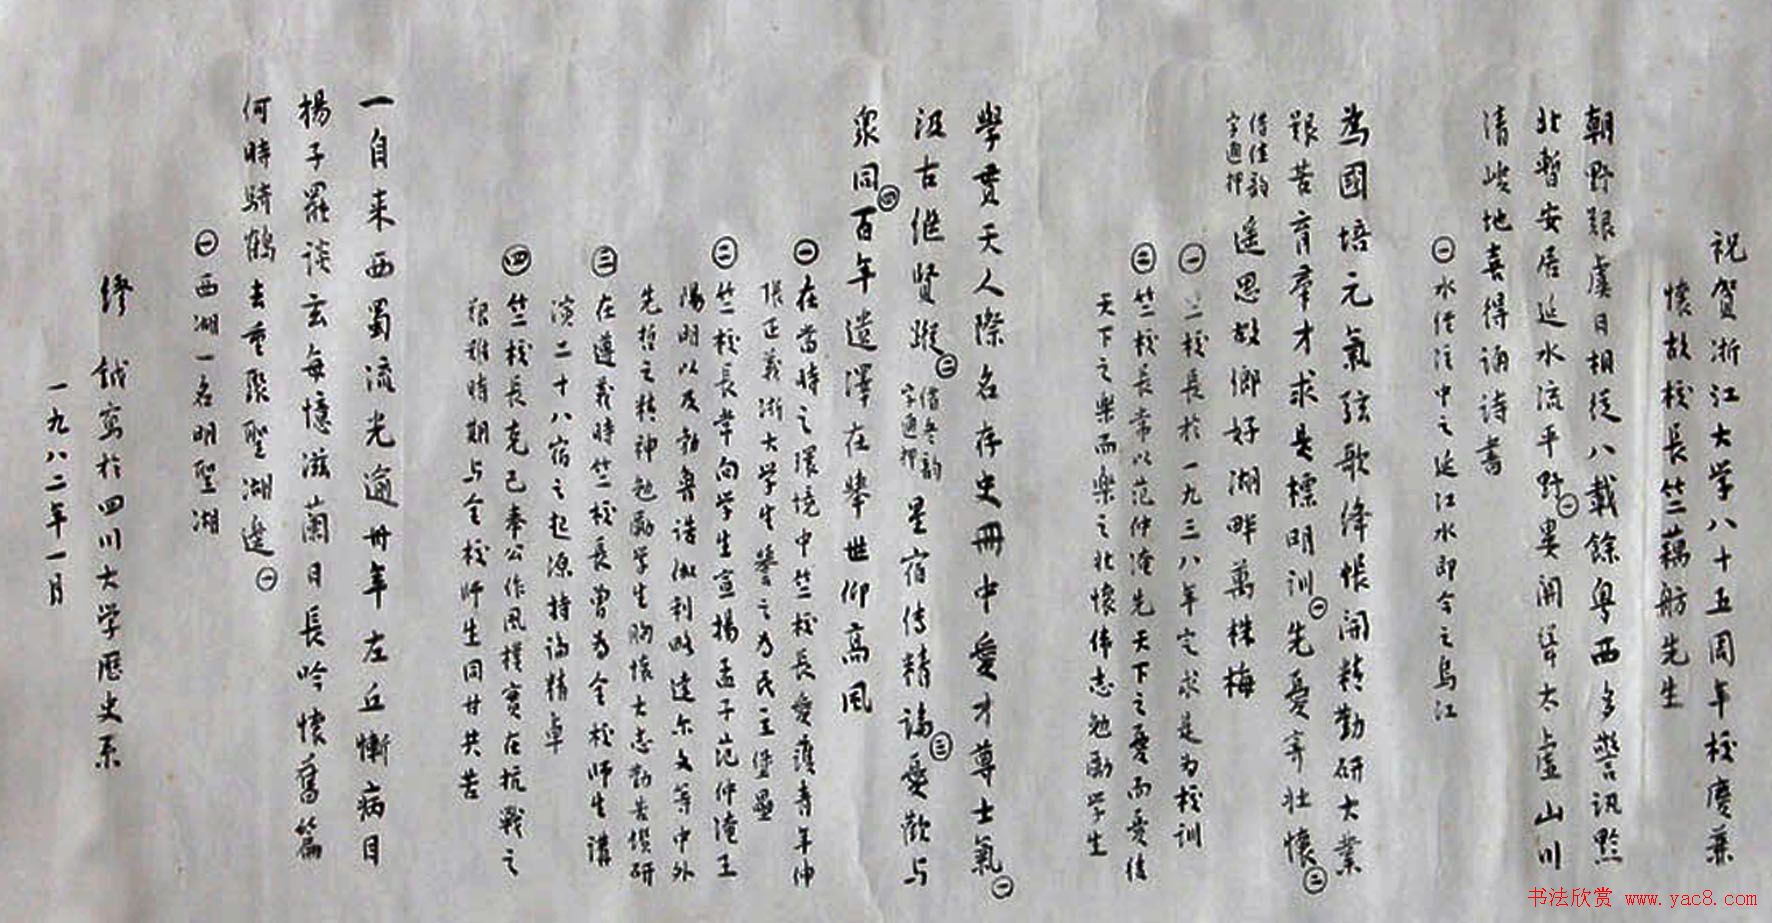 祝贺浙江大学八十五周年校庆兼
怀故校长竺藕舫先生
朝野艰虞日相从八载馀粤西多警讯黔
北暂安居延水流平野㊀娄关峙太虚山川
清峻地喜得诵诗书
㊀水经注中之延江水即今之乌江
为國培元氣弦歌绛帐開精勤研大業
艰苦育群才求是标明训㊀先憂寄壮懷㊁
借佳韵
字通押
遥思故鄉好湖畔萬株梅
㊀竺校長於一九三八年定求是为校训
㊁竺校長常以范仲淹先天下之憂而憂後
天下之樂而樂之壮懷伟志勉励学生
學贯天人際名存史冊中愛才尊士氣㊀
汲古继贤蹤㊁
借冬韵
字通押
星宿傳精論㊂憂歡与
衆同㊃百年遺澤在舉世仰高風
㊀在當時之環境中竺校長愛護青年伸
張正義浙大学生誉之为民主堡壘
㊁竺校長常向学生宣揚孟子范仲淹王
陽明以及布鲁诺伽利略达尔文等中外
先哲之精神勉励学生胸懷大志勤苦鑽研
㊂在遵义時竺校長曾为全校師生講
演二十八宿之起源持論精卓
㊃竺校長克己奉公作風樸實在抗戰之
艰难時期与全校师生同甘共苦
一自来西蜀流光逾卅年左丘慚病目
楊子罷談玄每憶滋蘭日長吟懷舊篇
何時騎鶴去重聚聖湖邊㊀
㊀西湖一名明聖湖
缪鉞寫於四川大学歷史系
一九八二年一月
书法欣赏 www.yac8.com